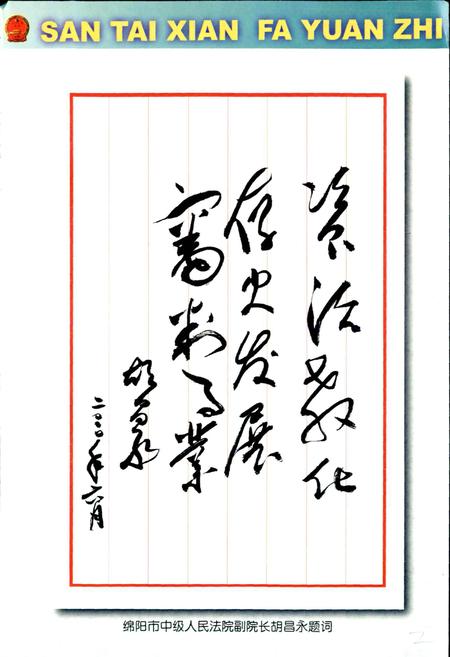 SAN TAI XIAN FA YUAN ZHI
资治教化
存史发展
审判事业
胡昌永
二〇〇〇年六月
绵阳市中级人民法院副院长胡昌永题词